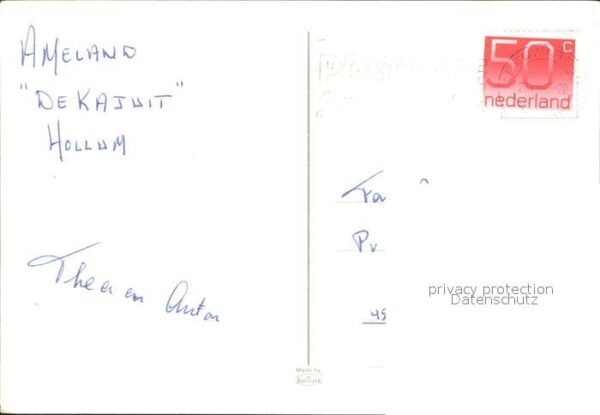 AMELAND
"DE KAJUIT"
HOLLUM
Thea en Anton
50 c
nederland
Fa
Pv
45
privacy protection
Datenschutz
Made by